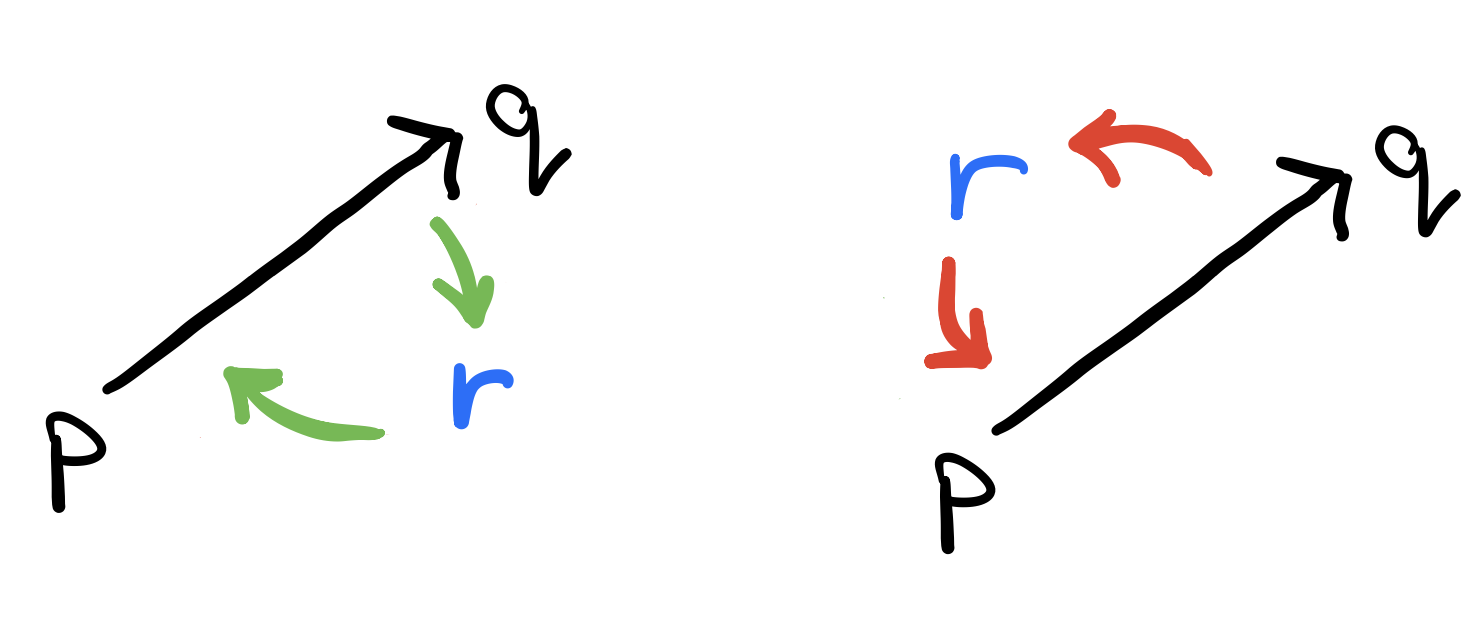 q
r
p
r
q
p